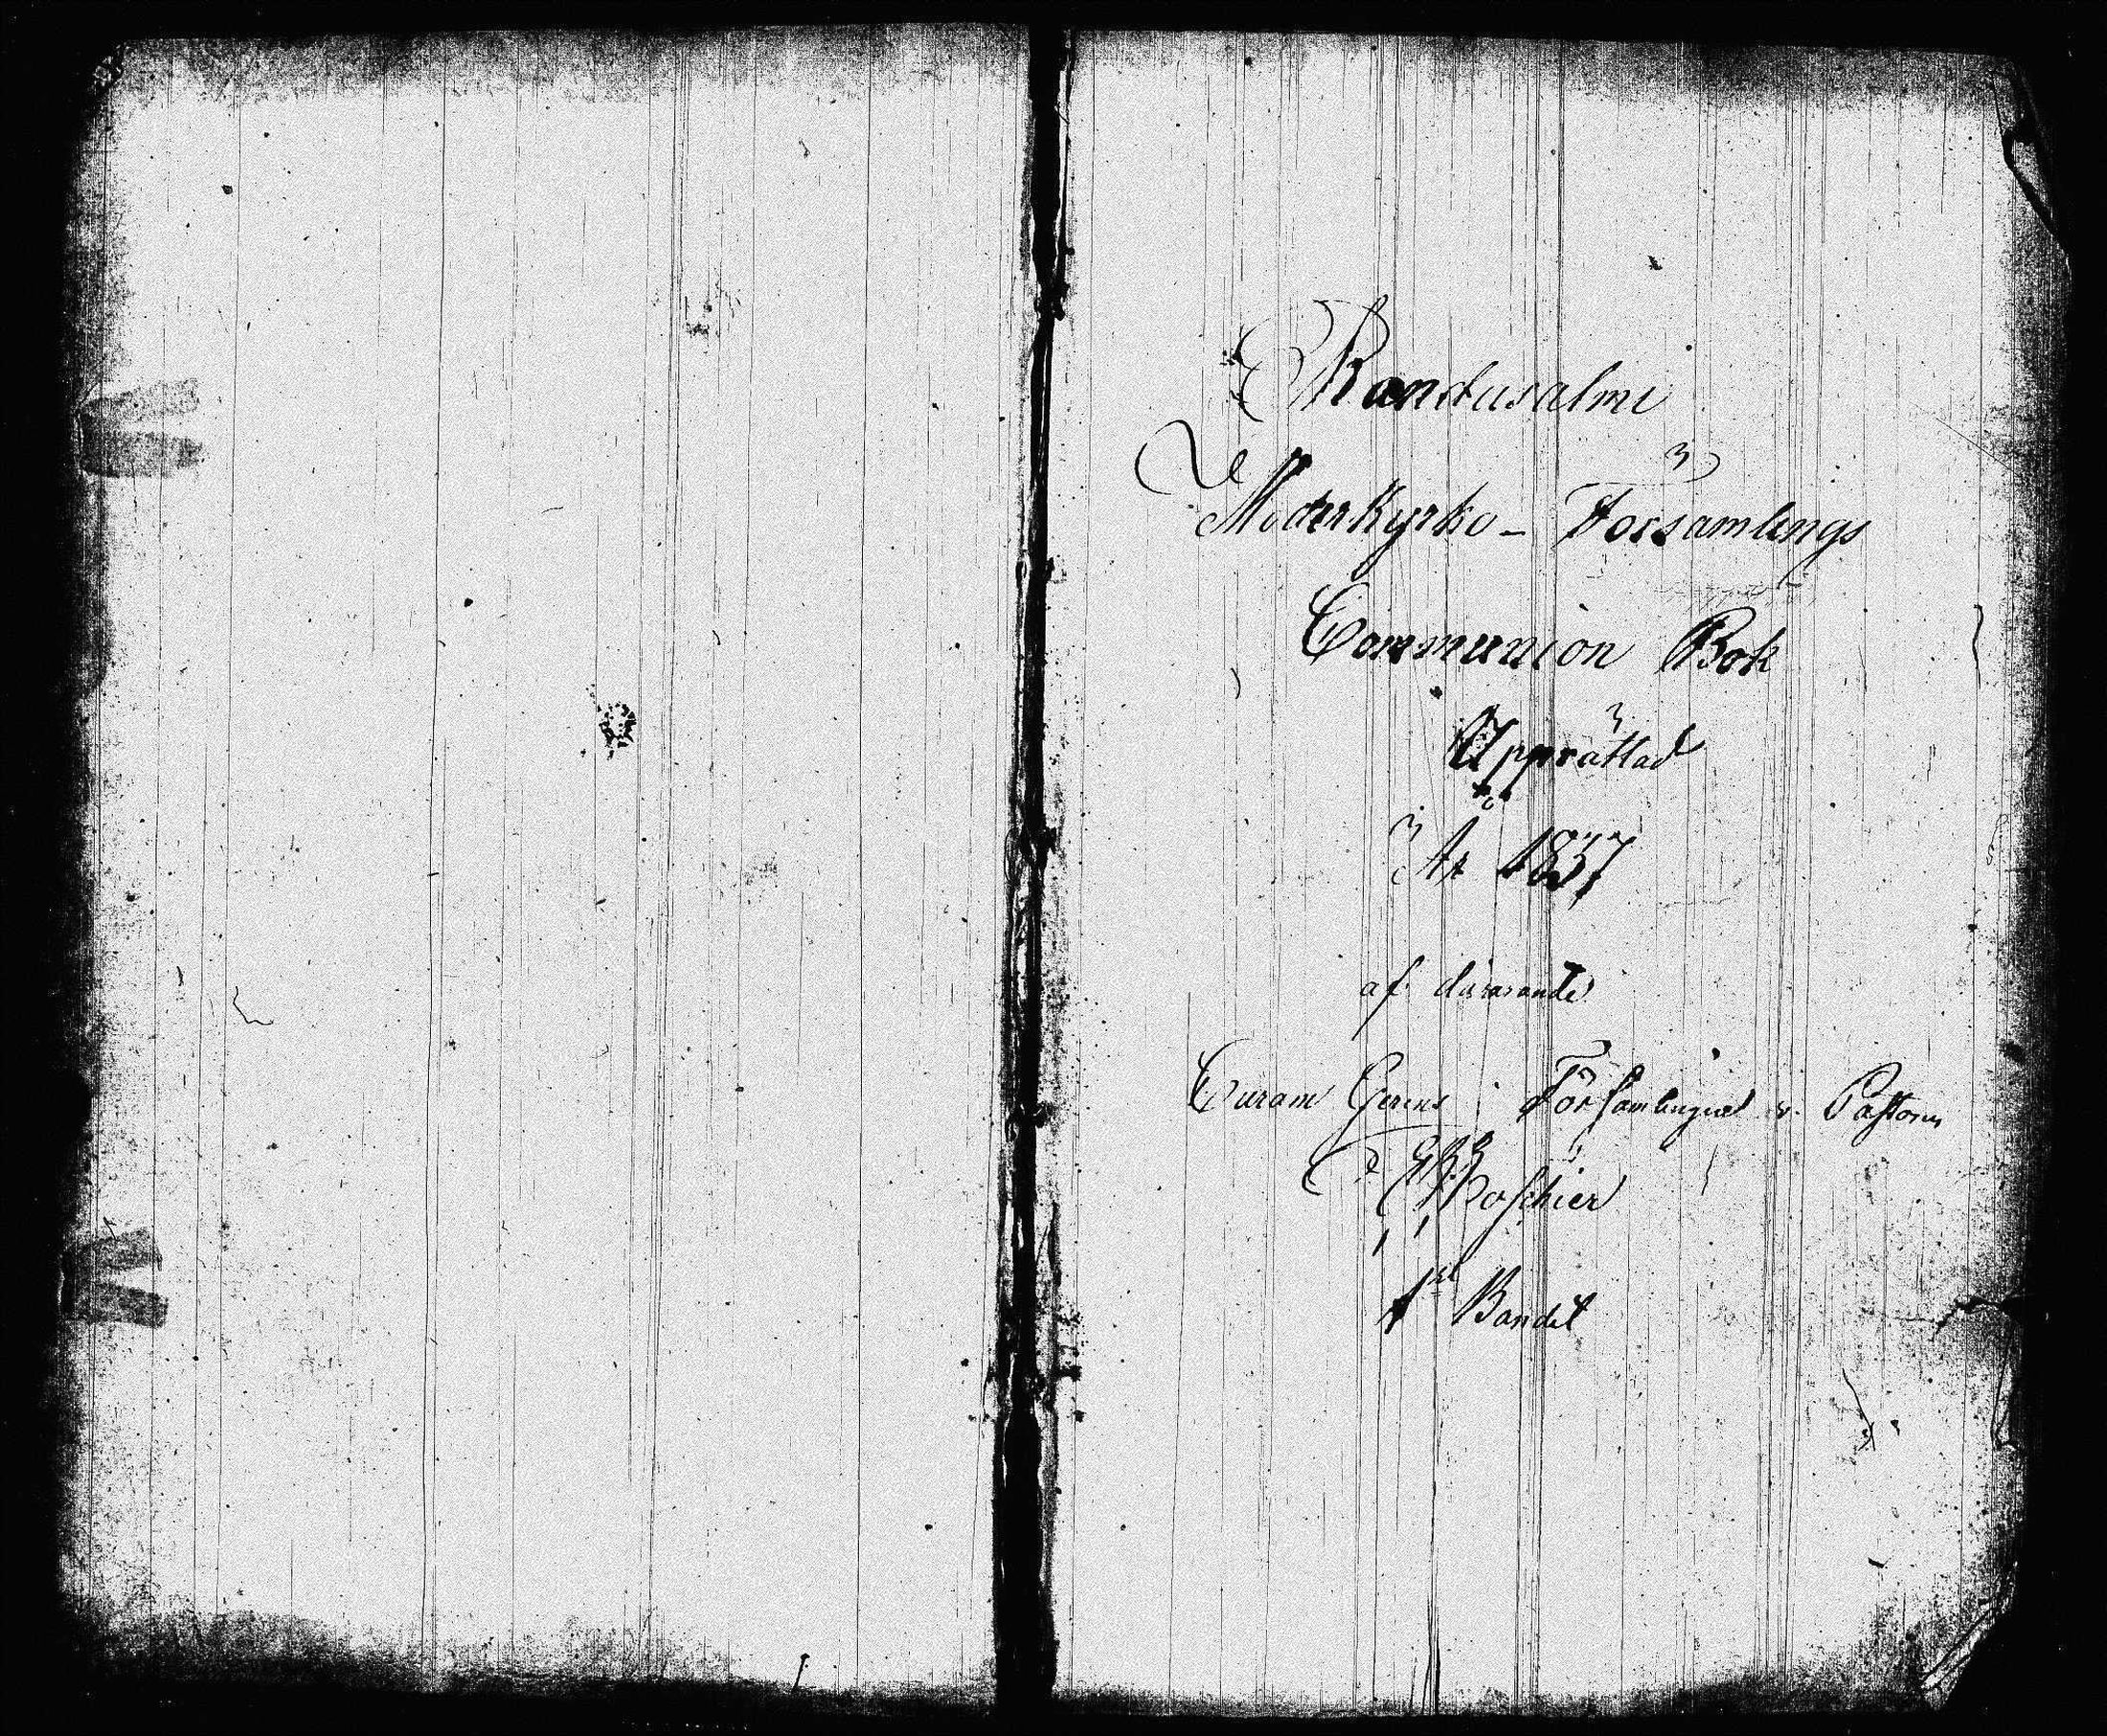 Randasalmi
Moderkyrko - Församlings
Communion Bok
Upprättad
År 1837
af dåvarande
Curam Gerens i Församlingen v. Pastorn
Poschier
1sta Bandet